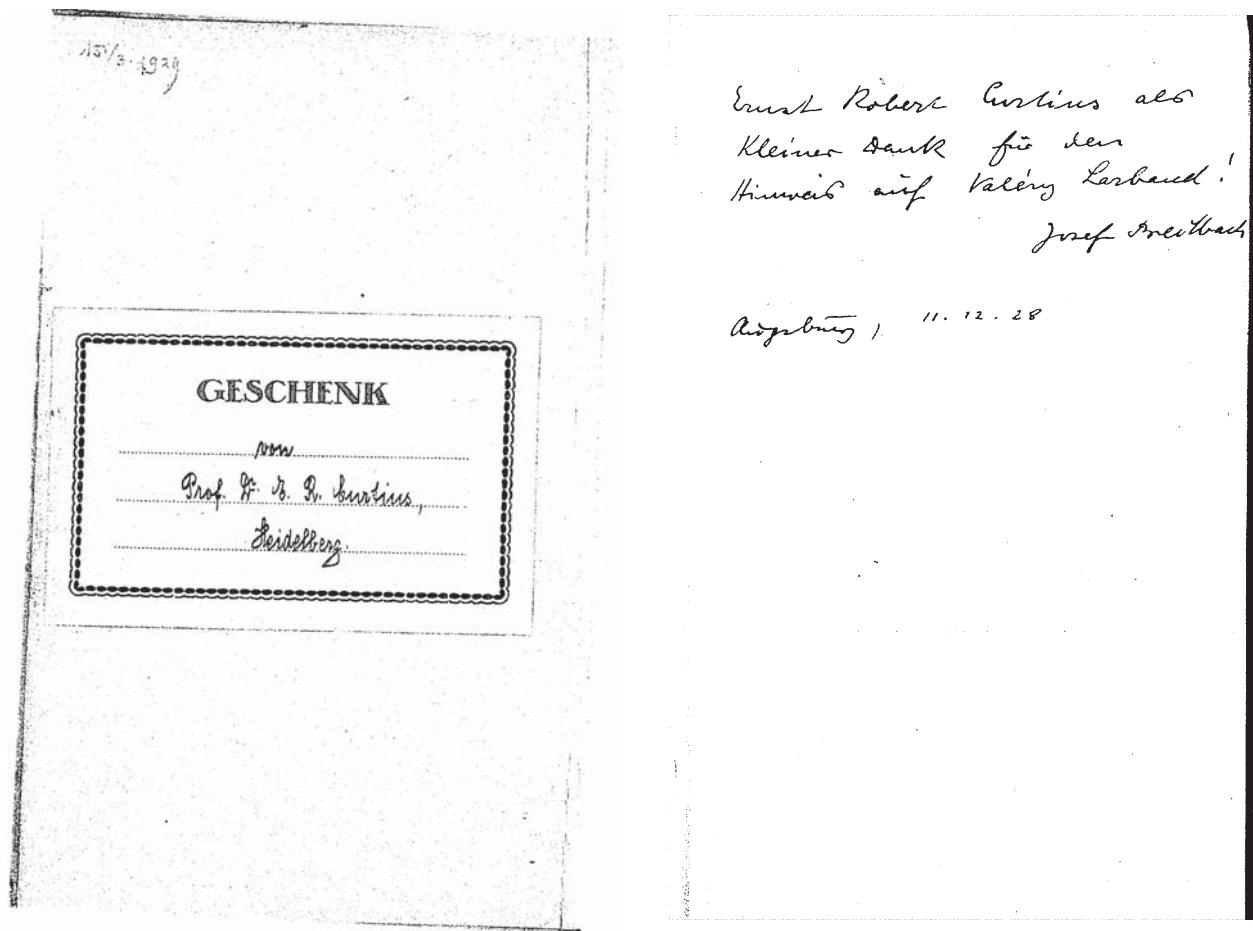 15/3. 1929
GESCHENK
von
Prof. Dr. E. R. Curtius,
Heidelberg.
Ernst Robert Curtius als
kleiner Dank für den
Hinweis auf Valéry Larbaud!
Josef Breitbach
Augsburg, 11.12.28